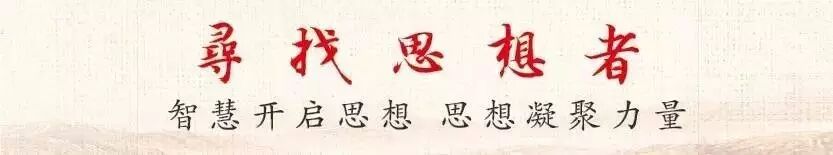 尋找思想者
智慧开启思想 思想凝聚力量